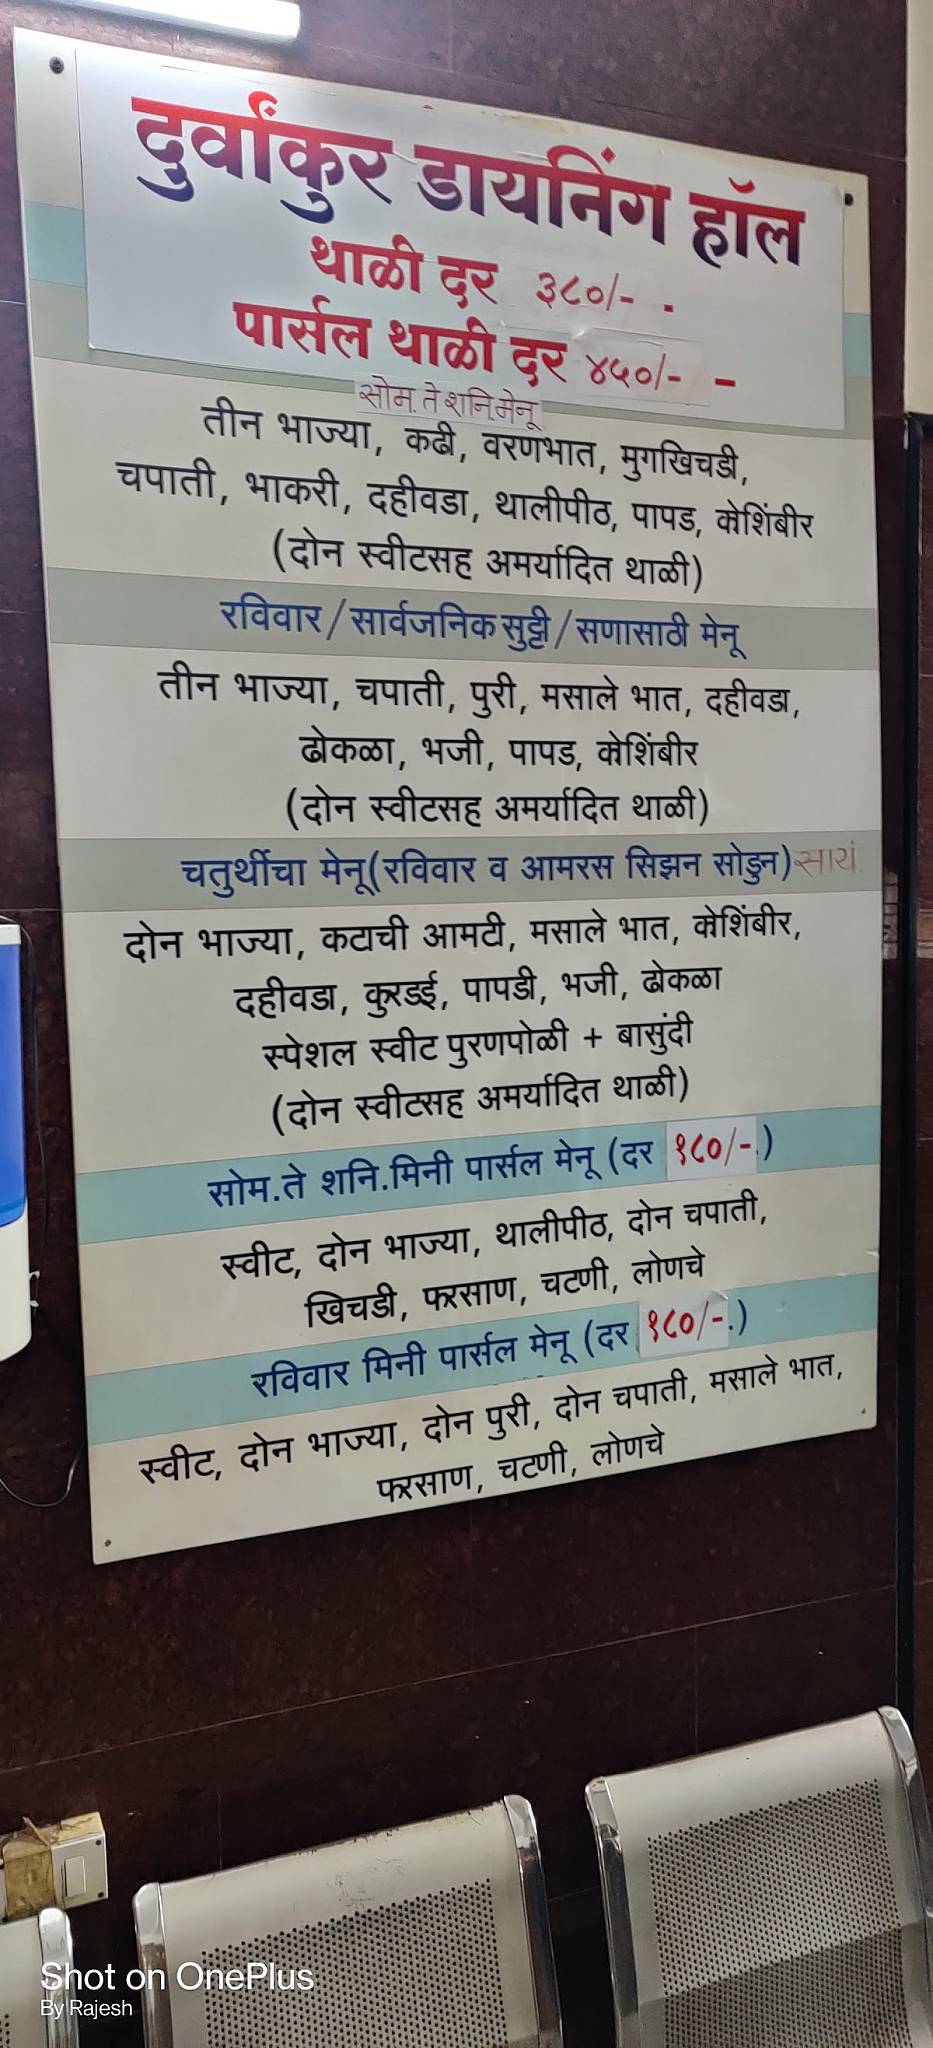 दुर्वांकुर डायनिंग हॉल
थाळी दर ३८०/- -
पार्सल थाळी दर ४५०/- -
सोम. ते शनि.मेनू
तीन भाज्या, कढी, वरणभात, मुगखिचडी,
चपाती, भाकरी, दहीवडा, थालीपीठ, पापड, कोशिंबीर
(दोन स्वीटसह अमर्यादित थाळी)
रविवार/सार्वजनिक सुट्टी/सणासाठी मेनू
तीन भाज्या, चपाती, पुरी, मसाले भात, दहीवडा,
ढोकळा, भजी, पापड, कोशिंबीर
(दोन स्वीटसह अमर्यादित थाळी)
चतुर्थीचा मेनू(रविवार व आमरस सिझन सोडुन) सायं.
दोन भाज्या, कटाची आमटी, मसाले भात, कोशिंबीर,
दहीवडा, कुरडई, पापडी, भजी, ढोकळा
स्पेशल स्वीट पुरणपोळी + बासुंदी
(दोन स्वीटसह अमर्यादित थाळी)
सोम.ते शनि.मिनी पार्सल मेनू (दर १८०/-.)
स्वीट, दोन भाज्या, थालीपीठ, दोन चपाती,
खिचडी, फरसाण, चटणी, लोणचे
रविवार मिनी पार्सल मेनू (दर १८०/-.)
स्वीट, दोन भाज्या, दोन पुरी, दोन चपाती, मसाले भात,
फरसाण, चटणी, लोणचे
Shot on OnePlus
By Rajesh